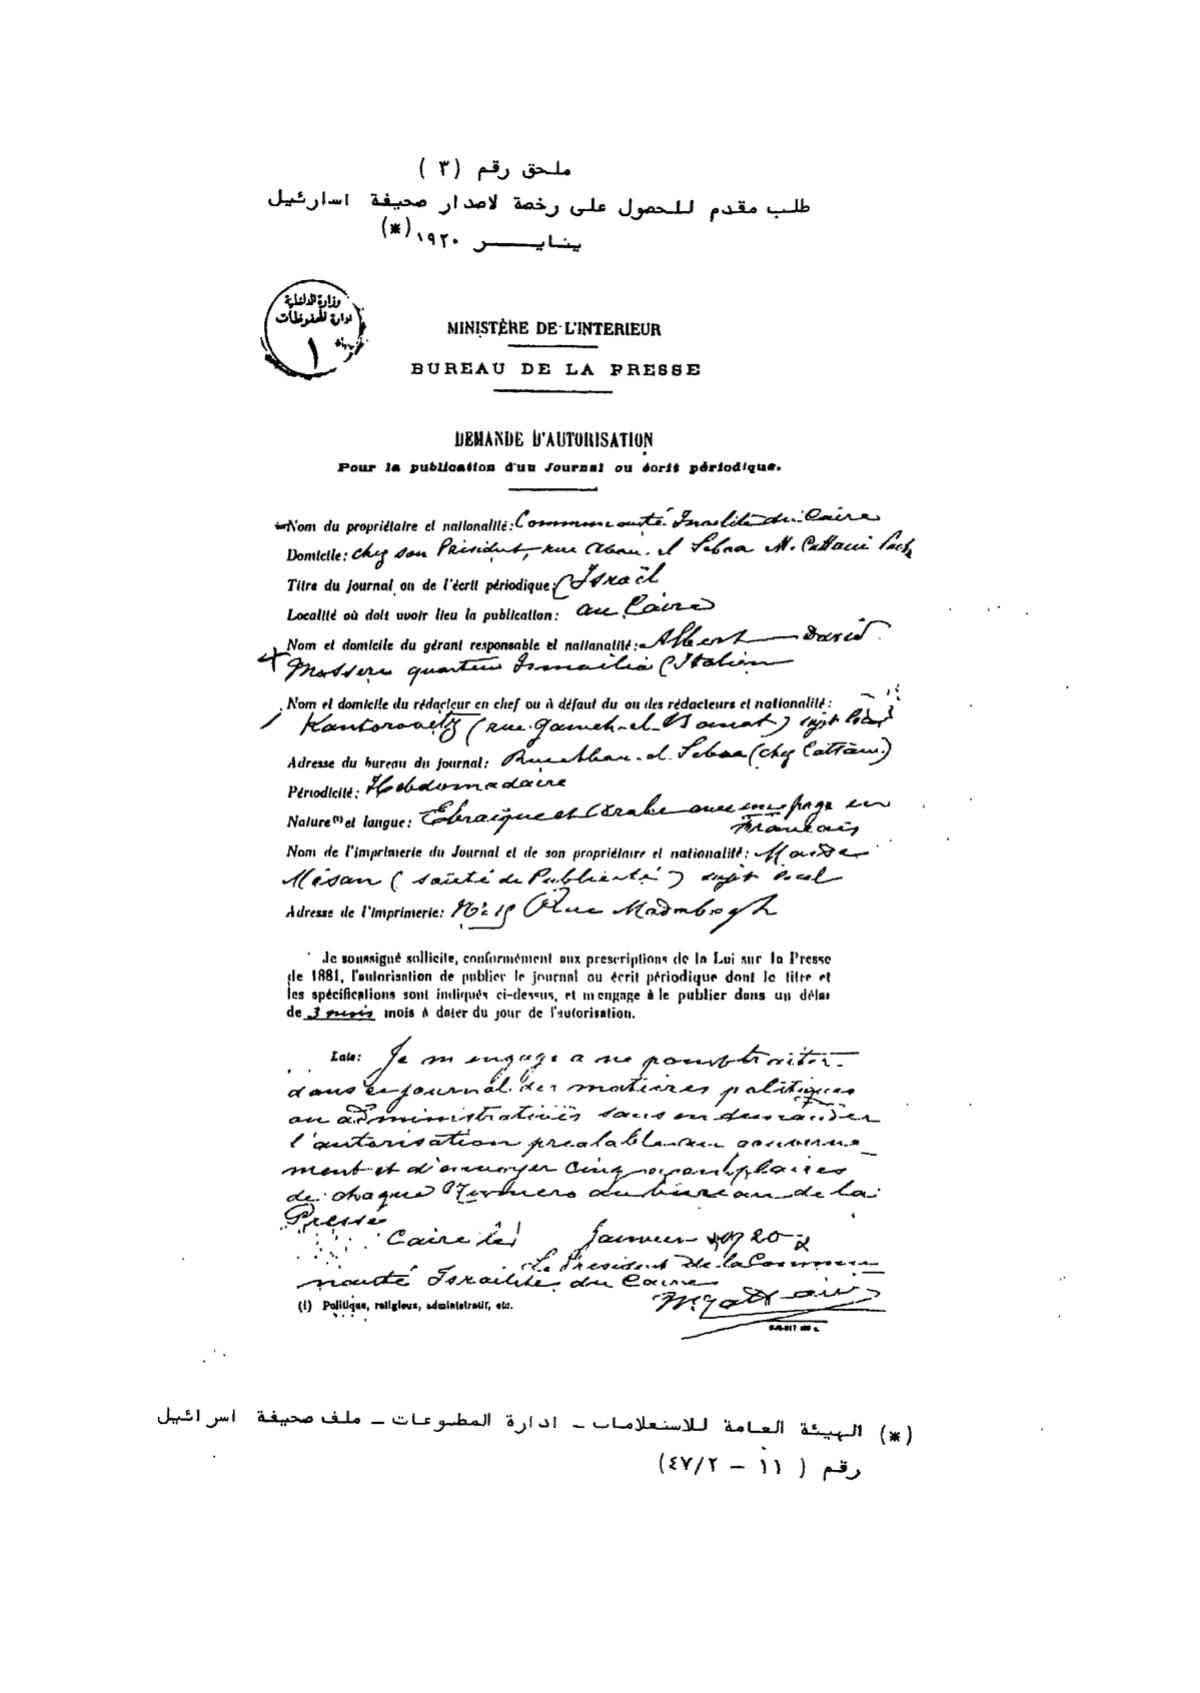 ملحق رقم (٣)
طلب مقدم للحصول على رخصة لاصدار صحيفة اسارئيل
ينايــــــر ١٩٢٠(*)
وزارة الداخلية
ادارة المحفوظات
١
MINISTÈRE DE L'INTERIEUR
BUREAU DE LA PRESSE
DEMANDE D'AUTORISATION
Pour la publication d'un Journal ou écrit périodique.
Nom du propriétaire et nationalité: Communauté Israélite du Caire
Domicile: chez son Président, rue Abou el Sebaa M. Cattaui Pach
Titre du Journal ou de l'écrit périodique: (Israël
Localité où doit avoir lieu la publication: au Caire
Nom et domicile du gérant responsable et nationalité: Albert David
Mosseri quartier Ismailia (Italien
Nom et domicile du rédacteur en chef ou à défaut du ou des rédacteurs et nationalité:
Kantorovitz (rue Gameh-el-Banat) sujet
Adresse du bureau du Journal: Rue Abou el Sebaa (chez Cattaui)
Périodicité: Hebdomadaire
Nature(1) et langue: Ebraïque et Arabe avec une page en
Français
Nom de l'imprimerie du Journal et de son propriétaire et nationalité:
Misan (société de Publicité) sujet local
Adresse de l'Imprimerie: No 19 Rue Madabegh
Je soussigné sollicite, conformément aux prescriptions de la Loi sur la Presse
de 1881, l'autorisation de publier le journal ou écrit périodique dont le titre et
les spécifications sont indiqués ci-dessus, et m'engage à le publier dans un délai
de 3 mois mois à dater du jour de l'autorisation.
Je m'engage a ne point traiter
dans ce journal des matières politiques
ou administratives sans en demander
l'autorisation préalable au gouverne
ment et d'envoyer cinq exemplaires
de chaque Numero au bureau de la
Presse
Caire le Janvier 1920
Le President de la Commu
nauté Israélite du Caire
(1) Politique, religieux, administratif, etc.
(*) الهيئة العامة للاستعلامات – ادارة المطبوعات – ملف صحيفة اسرائيل
رقم ( ١١ – ٤٧/٢)